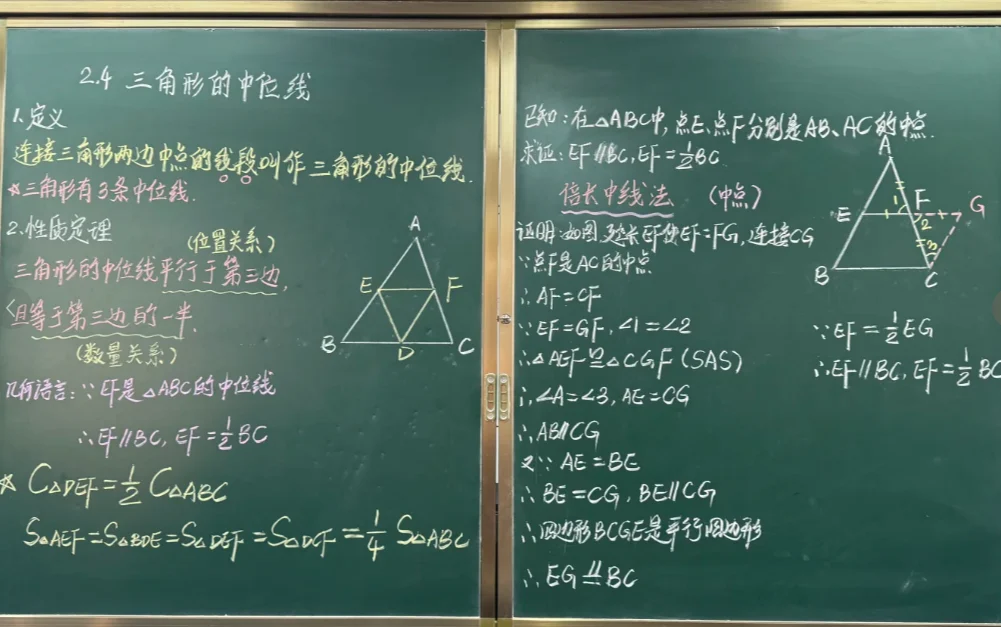 2.4 三角形的中位线
1.定义
连接三角形两边中点的线段叫作三角形的中位线.
☆三角形有3条中位线.
2.性质定理
(位置关系)
三角形的中位线平行于第三边,
且等于第三边的一半.
(数量关系)
几何语言:∵EF是△ABC的中位线
∴EF∥BC, EF=1/2BC
☆ C△DEF=1/2 C△ABC
S△AEF=S△BDE=S△DEF=S△DCF=1/4 S△ABC
A
E F
B D C
已知:在△ABC中,点E、点F分别是AB、AC的中点.
求证:EF∥BC, EF=1/2BC
倍长中线法 (中点)
证明:如图,延长EF使EF=FG,连接CG
∵点F是AC的中点
∴AF=CF
∵EF=GF,∠1=∠2
∴△AEF≌△CGF(SAS)
∴∠A=∠3, AE=CG
∴AB∥CG
又∵AE=BE
∴BE=CG, BE∥CG
∴四边形BCGE是平行四边形
∴EG⫫BC
A
E 1 F G
2
3
B C
∵EF=1/2EG
∴EF∥BC, EF=1/2BC